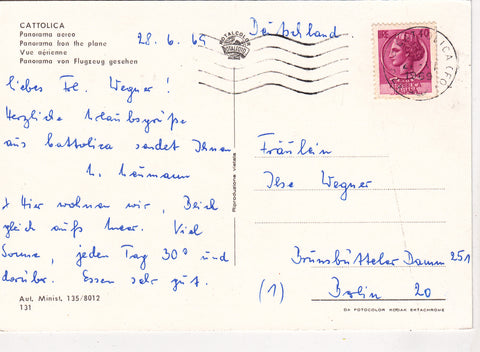 CATTOLICA
Panorama aereo
Panorama from the plane
Vue aérienne
Panorama von Flugzeug gesehen
28.6.65 Deutschland.
ROTALCOLOR
ROTALFOTO
40
Liebes Frl. Wegner!
Herzliche Urlaubsgrüße
aus Cattolica sendet Ihnen
Neumann
Hier wohnen wir, Blick
gleich aufs Meer. Viel
Sonne, jeden Tag 30° und
darüber. Essen sehr gut.
Aut. Minist. 135/8012
131
Riproduzione vietata
Fräulein
Ilse Wegner
Brunsbütteler Damm 251
(1) Berlin 20
DA FOTOCOLOR KODAK EKTACHROME